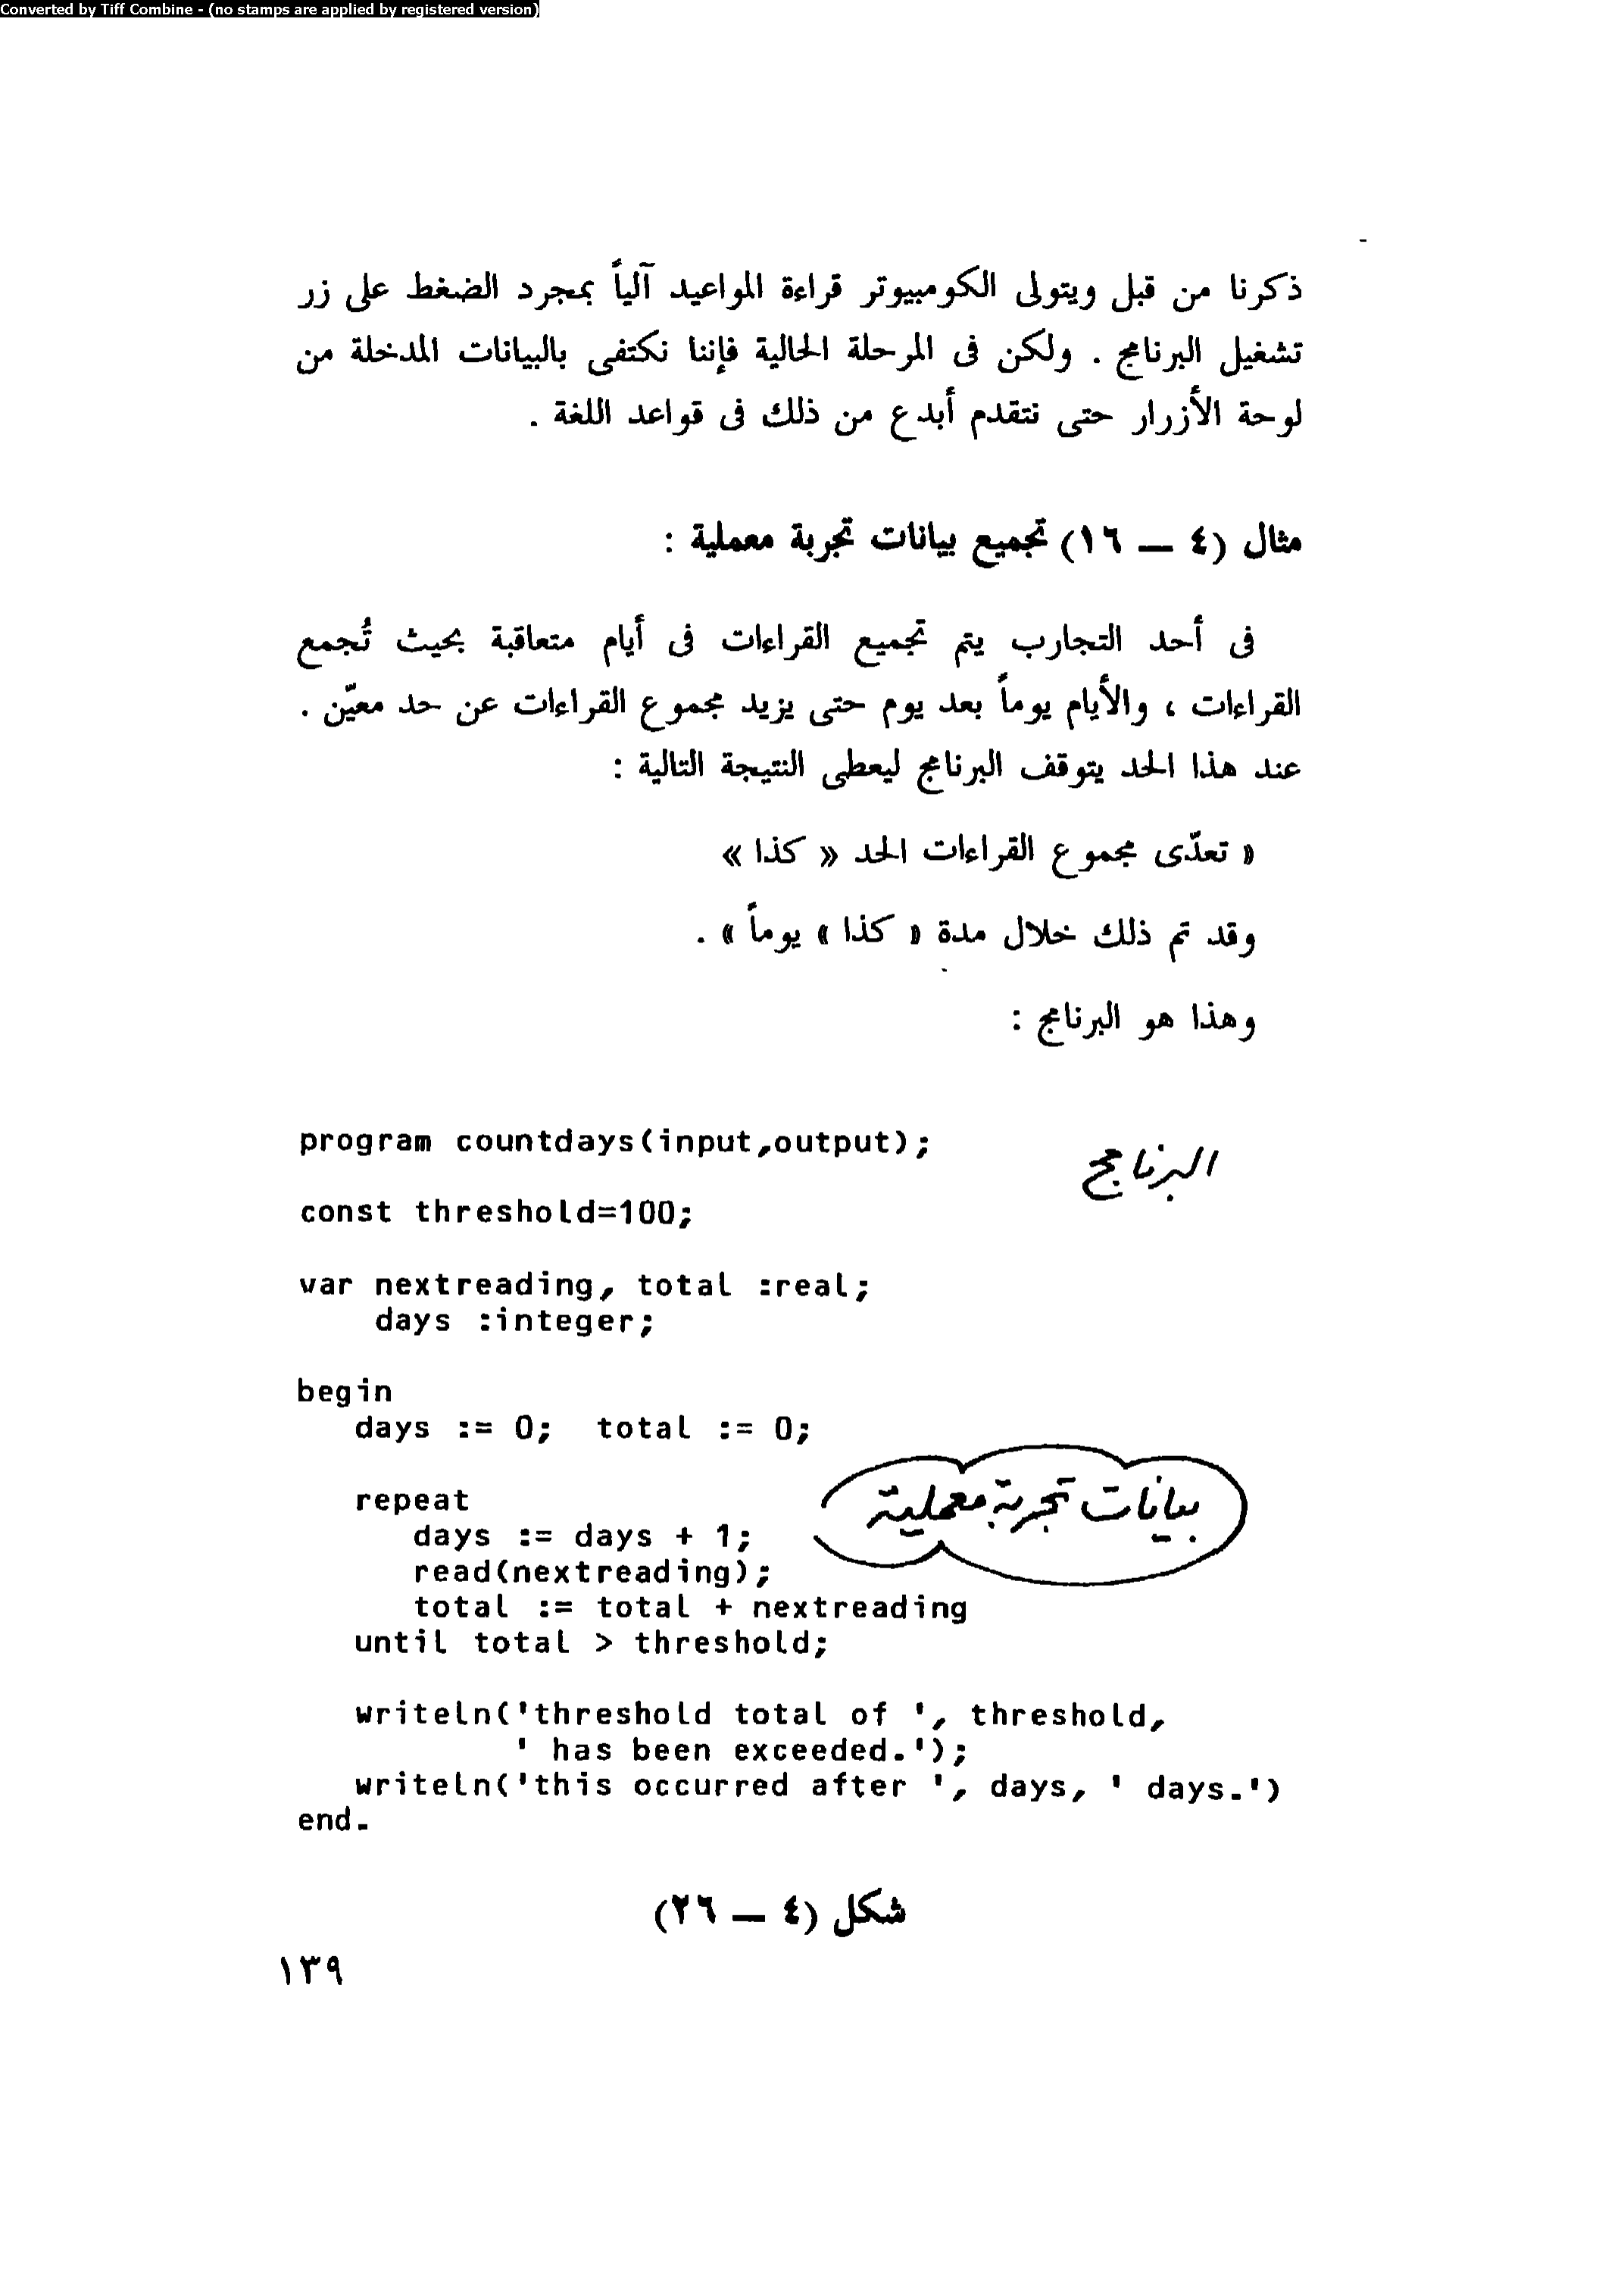 Converted by Tiff Combine - (no stamps are applied by registered version)
ذكرنا من قبل ويتولى الكومبيوتر قراءة المواعيد آلياً بمجرد الضغط على زر
تشغيل البرنامج . ولكن فى المرحلة الحالية فإننا نكتفى بالبيانات المدخلة من
لوحة الأزرار حتى نتقدم أبدع من ذلك فى قواعد اللغة .
مثال (٤ — ١٦) تجميع بيانات تجربة معملية :
فى أحد التجارب يتم تجميع القراءات فى أيام متعاقبة بحيث تُجمع
القراءات ، والأيام يوماً بعد يوم حتى يزيد مجموع القراءات عن حد معيّن .
عند هذا الحد يتوقف البرنامج ليعطى النتيجة التالية :
« تعدّى مجموع القراءات الحد « كذا »
وقد تم ذلك خلال مدة « كذا » يوماً » .
وهذا هو البرنامج :
program countdays(input,output);
البرنامج
const threshold=100;
var nextreading, total :real;
days :integer;
begin
days := 0;  total := 0;
repeat
بيانات تجربة معملية
days := days + 1;
read(nextreading);
total := total + nextreading
until total > threshold;
writeln('threshold total of ', threshold,
' has been exceeded.');
writeln('this occurred after ', days, ' days.')
end.
شكل (٤ — ٢٦)
١٣٩